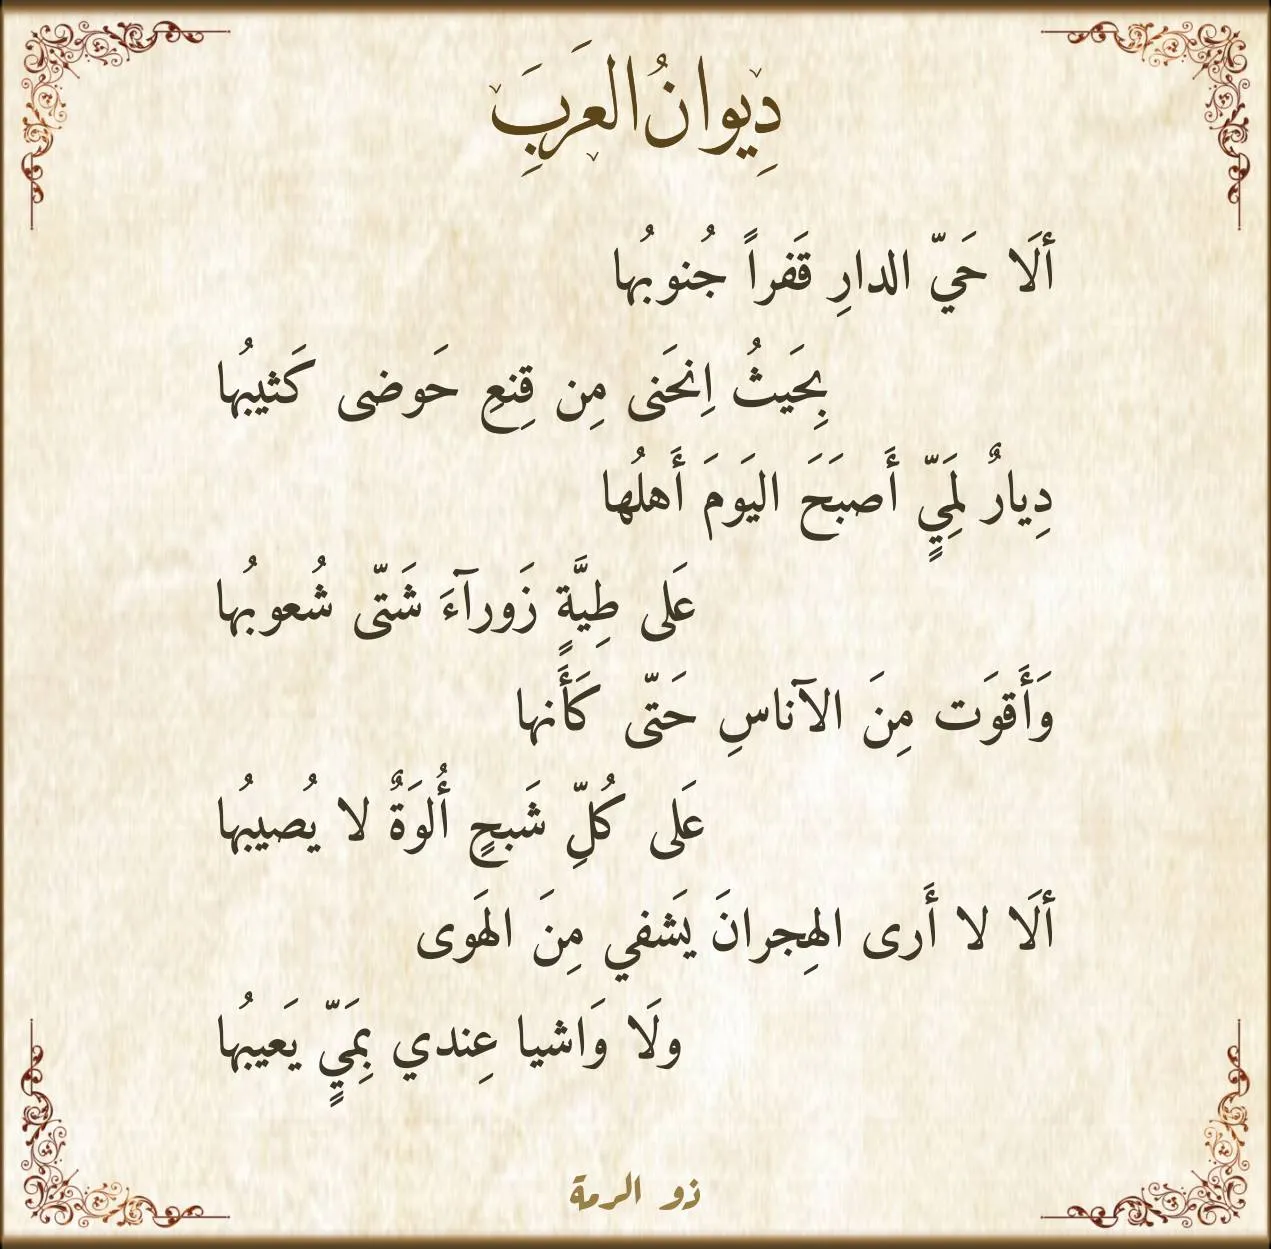 دِيوانُ العَرَبِ
ألَا حَيّ الدارِ قَفراً جُنوبُها
بِحَيثُ اِنحَنى مِن قِنعِ حَوضى كَثيبُها
دِيارٌ لِمَيٍّ أَصبَحَ اليَومَ أَهلُها
عَلى طِيَّةٍ زَورآءَ شَتّى شُعوبُها
وَأَقوَت مِنَ الآناسِ حَتّى كَأَنها
عَلى كُلِّ شَبحٍ أُلوَةٌ لا يُصيبُها
ألَا لا أَرى الهِجرانَ يَشفي مِنَ الهَوى
ولَا وَاشيا عِندي بِمَيٍّ يَعيبُها
ذو الرمة